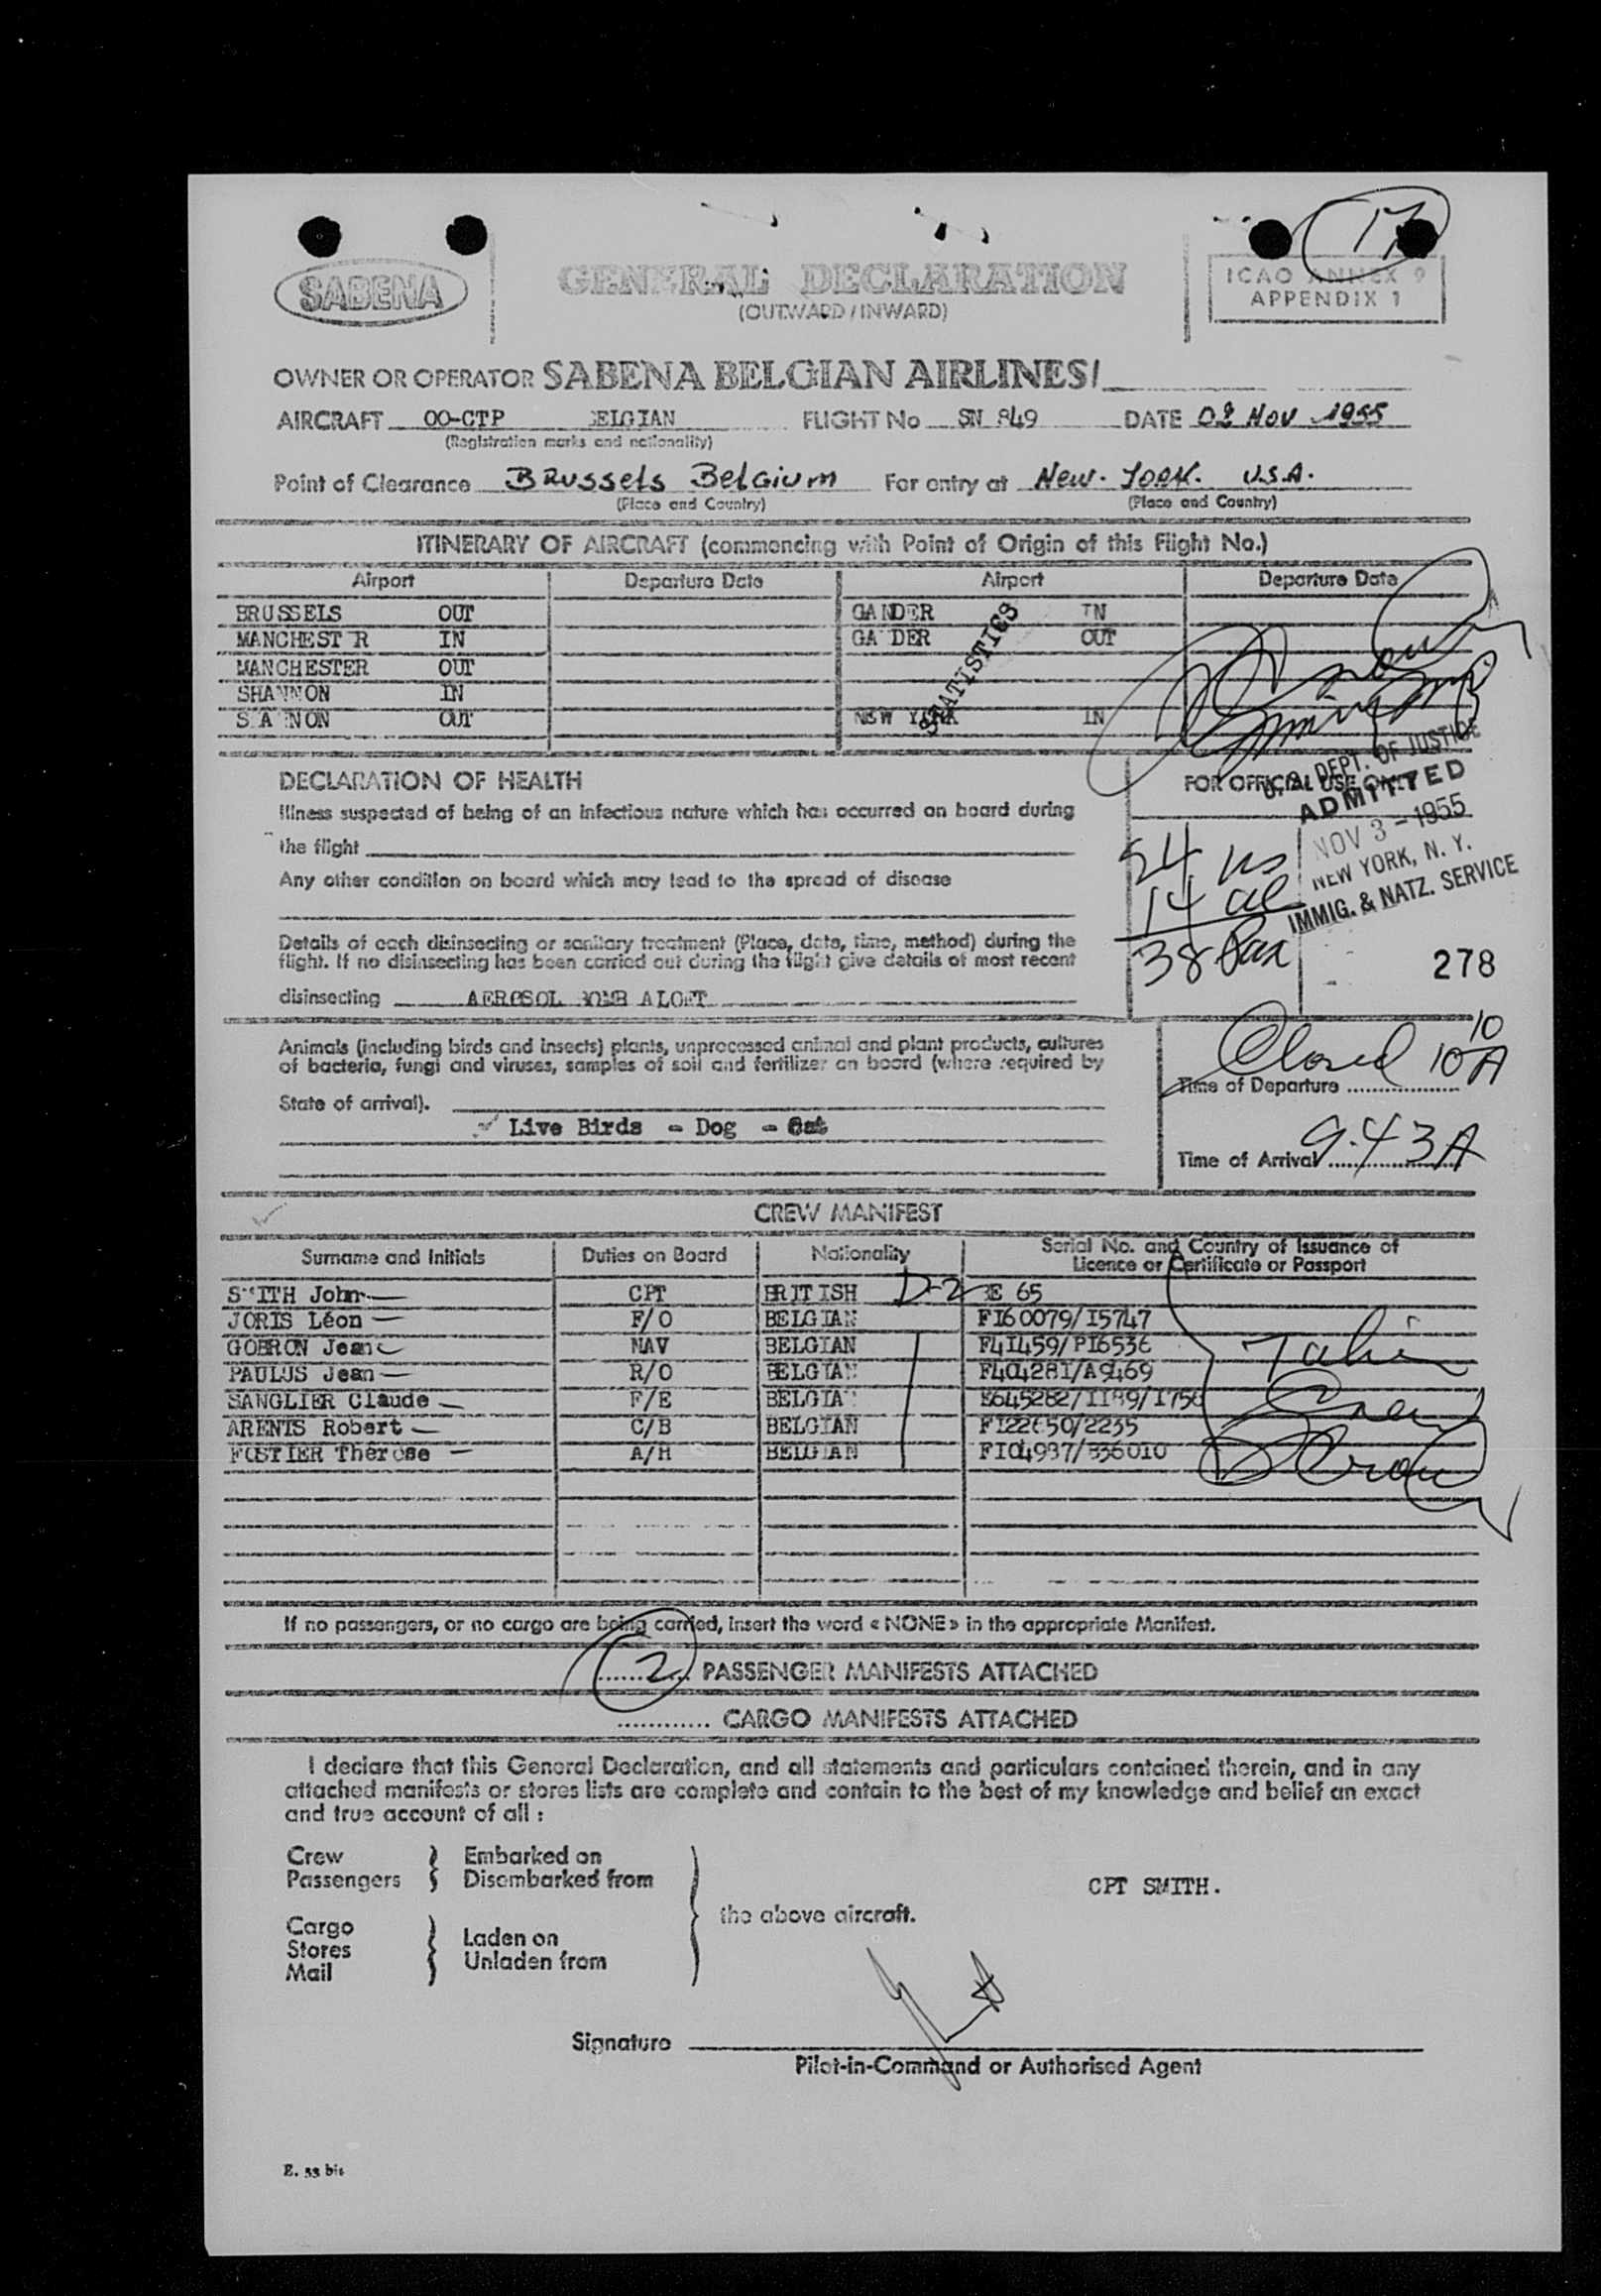 17
SABENA
GENERAL DECLARATION
(OUTWARD/INWARD)
ICAO ANNEX 9
APPENDIX 1
OWNER OR OPERATOR SABENA BELGIAN AIRLINES/
AIRCRAFT OO-CTP BELGIAN FLIGHT No SN 849 DATE 02 NOV 1955
(Registration marks and nationality)
Point of Clearance BRussels Belgium For entry at New-YORK. U.S.A.
(Place and Country) (Place and Country)
ITINERARY OF AIRCRAFT (commencing with Point of Origin of this Flight No.)
Airport Departure Date Airport Departure Date
BRUSSELS OUT GANDER IN
MANCHEST R IN GA DER OUT
MANCHESTER OUT
SHANNON IN
S A NON OUT NEW YORK IN
STATISTICS
DECLARATION OF HEALTH
Illness suspected of being of an infectious nature which has occurred on board during
the flight
Any other condition on board which may lead to the spread of disease
Details of each disinsecting or sanitary treatment (Place, date, time, method) during the
flight. If no disinsecting has been carried out during the flight give details of most recent
disinsecting AEROSOL BOMB ALOFT
FOR OFFICIAL USE ONLY
U. S. DEPT. OF JUSTICE
ADMITTED
NOV 3 - 1955
NEW YORK, N. Y.
IMMIG. & NATZ. SERVICE
24 us
14 al
38 Pax
278
Animals (including birds and insects) plants, unprocessed animal and plant products, cultures
of bacteria, fungi and viruses, samples of soil and fertilizer on board (where required by
State of arrival).
Live Birds - Dog - Cat
Closed 10 10 A
Time of Departure
Time of Arrival 9.43A
CREW MANIFEST
Surname and Initials Duties on Board Nationality Serial No. and Country of Issuance of
Licence or Certificate or Passport
S ITH John CPT BRITISH D-2 BE 65
JORIS Léon F/O BELGIAN FI60079/I5747
GOBRON Jean NAV BELGIAN F4I459/PI6536
PAULUS Jean R/O BELGIAN F40428I/A9469
SANGLIER Claude F/E BELGIA E645282/II89/I756
ARENTS Robert C/B BELGIAN FI22650/2235
FOSTIER Thérèse A/H BELGIAN FI04937/836010
If no passengers, or no cargo are being carried, insert the word « NONE » in the appropriate Manifest.
2 PASSENGER MANIFESTS ATTACHED
CARGO MANIFESTS ATTACHED
I declare that this General Declaration, and all statements and particulars contained therein, and in any
attached manifests or stores lists are complete and contain to the best of my knowledge and belief an exact
and true account of all :
Crew Embarked on
Passengers Disembarked from
CPT SMITH.
the above aircraft.
Cargo
Stores Laden on
Mail Unladen from
Signature
Pilot-in-Command or Authorised Agent
E. 53 bis